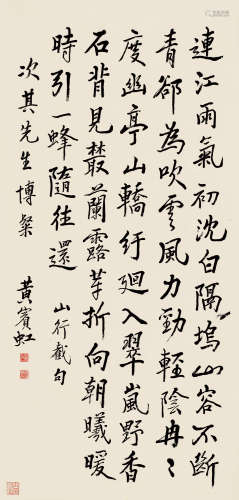 連江雨氣初沈白隔塢山容不斷
青郤為吹雲風力勁輕陰冉〻
度幽亭山轎紆迴入翠嵐野香
石背見叢蘭露芽折向朝曦暖
時引一蜂隨往還 山行截句
次其先生博粲 黃賓虹